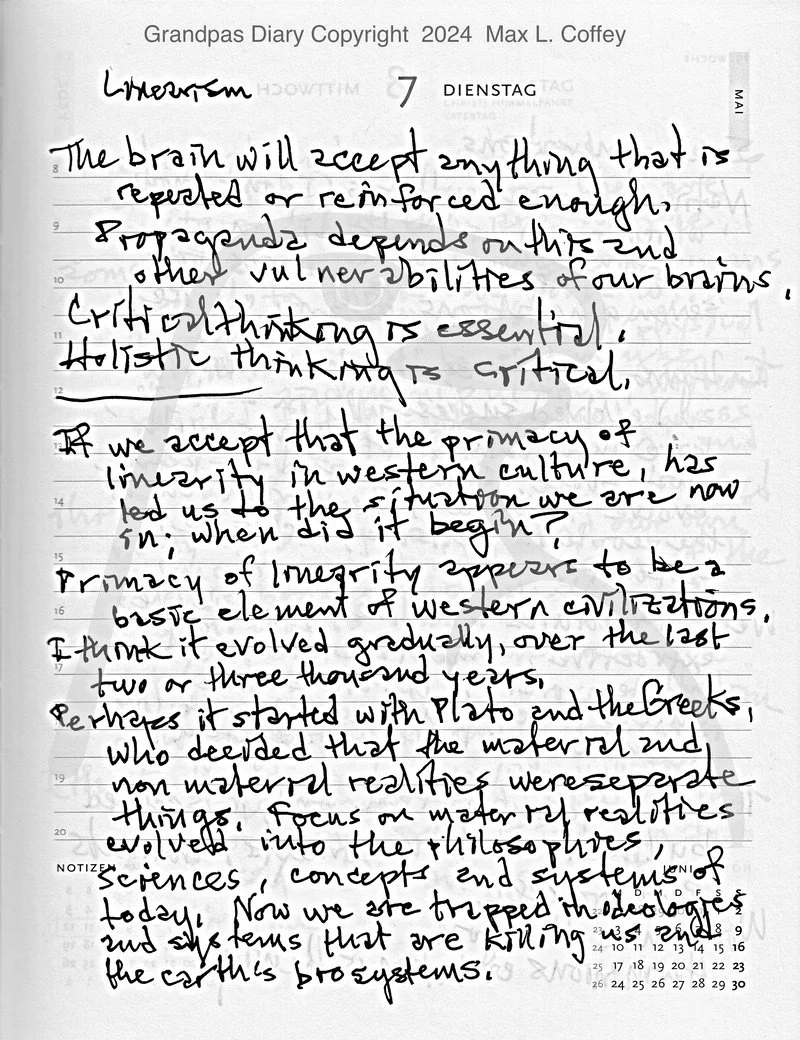 Grandpas Diary Copyright 2024 Max L. Coffey
Linearism
7 DIENSTAG
MAI
The brain will accept anything that is
8
repeated or reinforced enough.
9
Propaganda depends on this and
other vulnerabilities of our brains.
10
Critical thinking is essential.
11
Holistic thinking is critical.
12
If we accept that the primacy of
13
linearity in western culture, has
led us to the situation we are now
14
in; when did it begin?
15
Primacy of linearity appears to be a
16
basic element of western civilizations.
I think it evolved gradually, over the last
17
two or three thousand years.
Perhaps it started with Plato and the Greeks,
who decided that the material and
19
non material realities were separate
things. Focus on material realities
20
evolved into the philosophies,
NOTIZEN
JUNI
sciences, concepts and systems of
M D M D F S S
today. Now we are trapped in ideologies
22 2
and systems that are killing us and
23 8 9
24 10 11 12 13 14 15 16
the earth's biosystems.
25 17 18 19 20 21 22 23
26 24 25 26 27 28 29 30